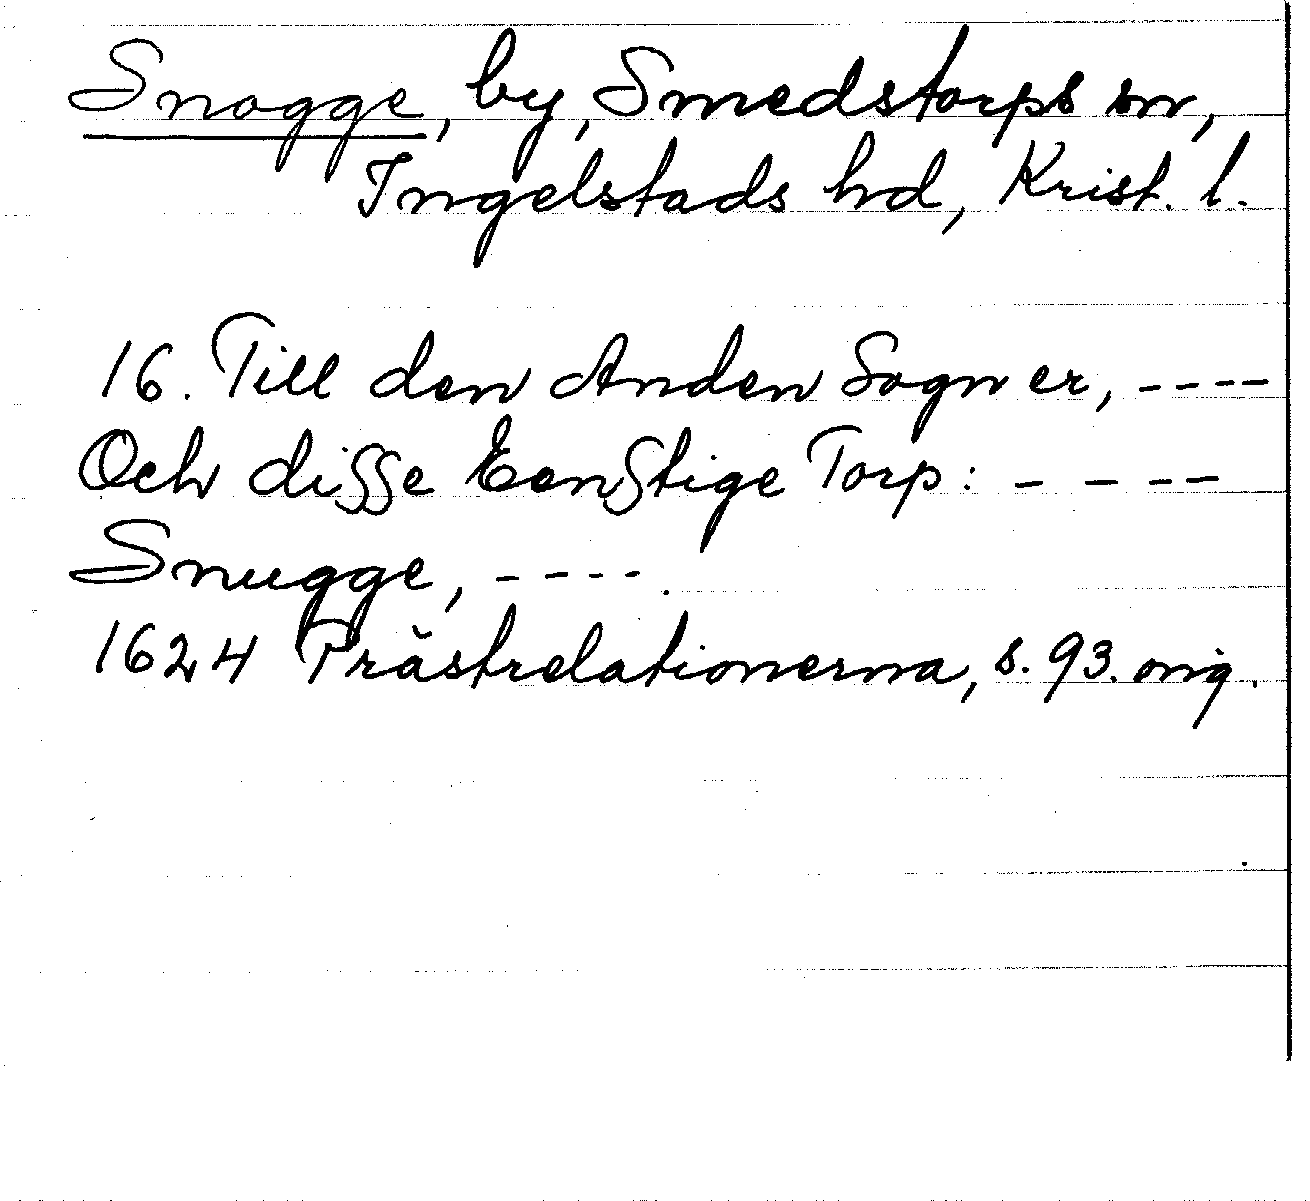 Snogge, by, Smedstorps sn,
Ingelstads hd, Krist. l.
16. Till den Anden Sogn er, ----
Och disse Eenstige Torp: - - --
Snugge, ----.
1624 Prästrelationerna, s. 93. orig.